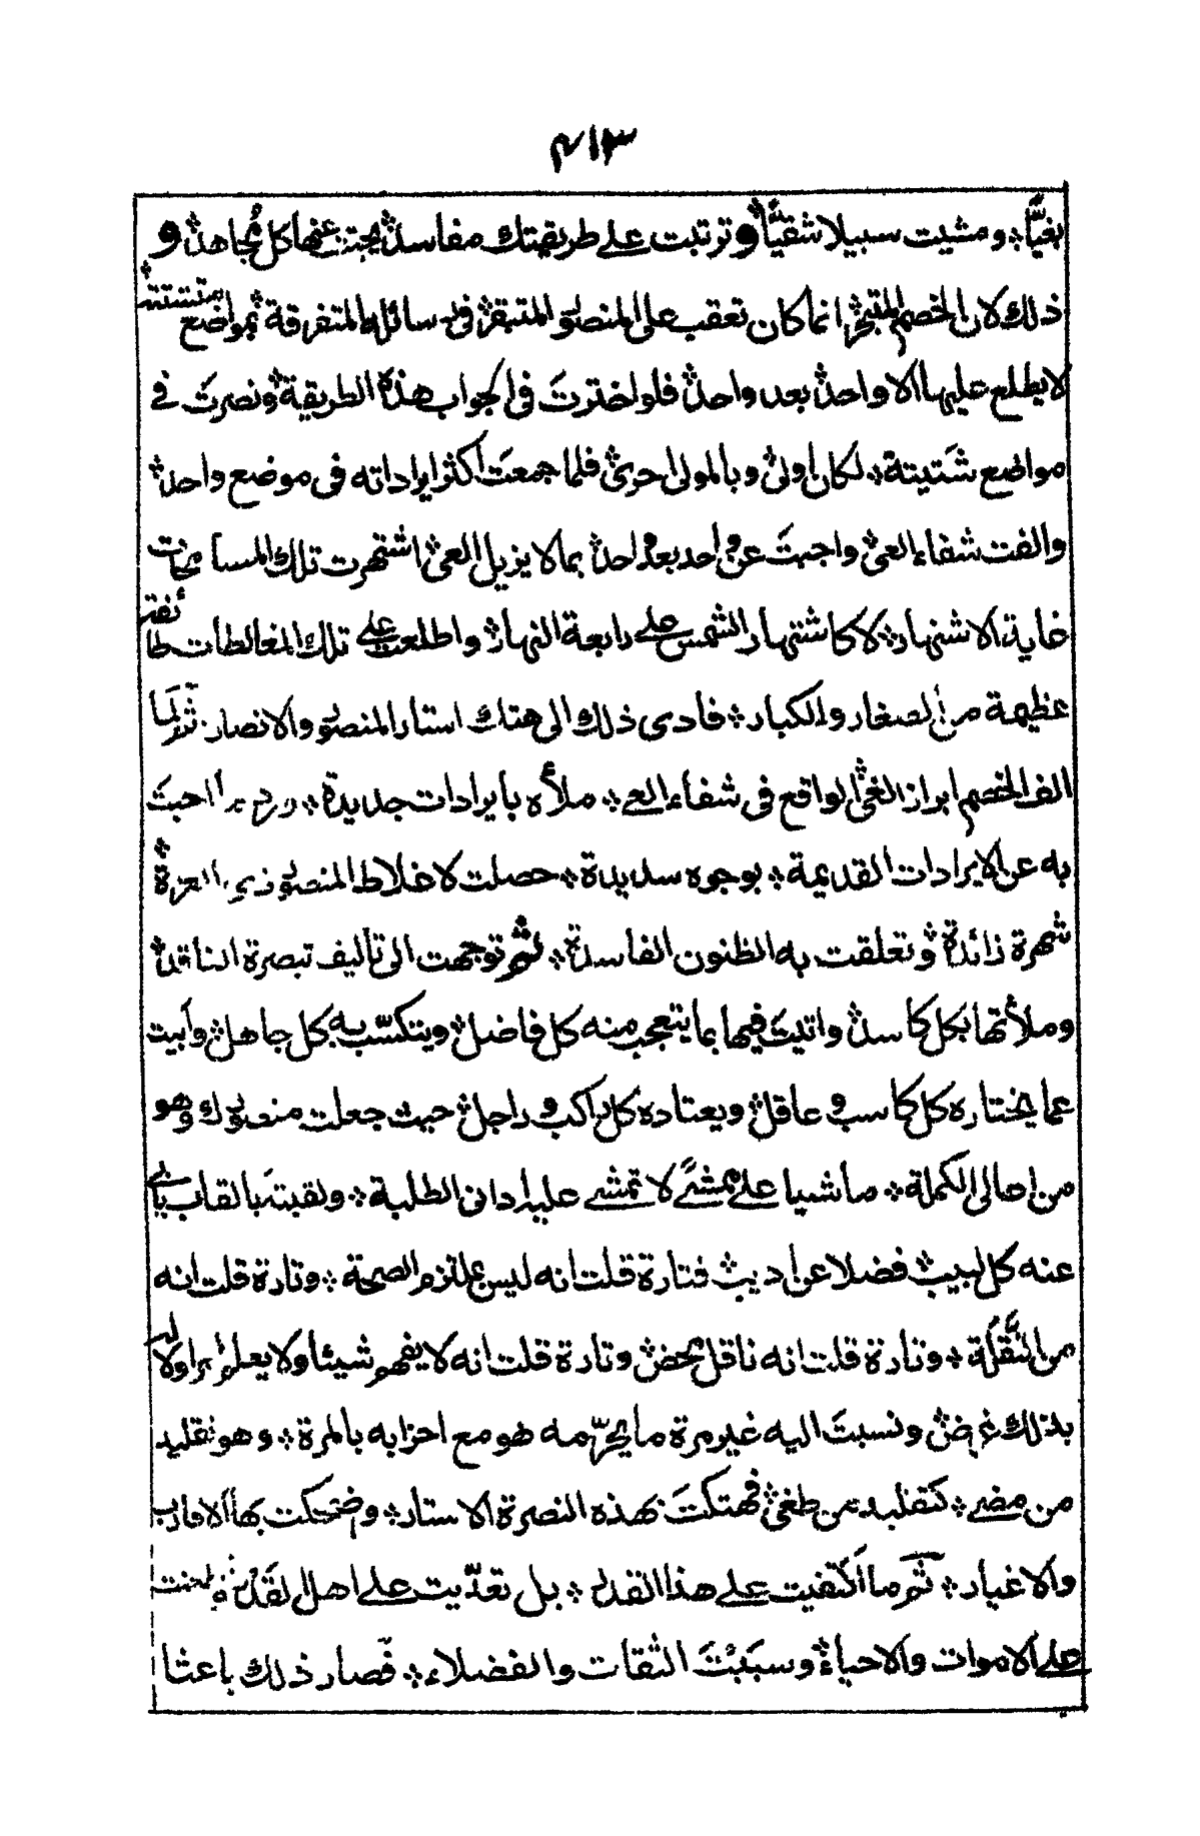 ٤١٣
بغيًّا ۞ ومشيت سبيلا شقيًّا ۞ وترتبت على طريقتك مفاسد ۞ يجتنب عنها كل مجاهد ۞ و
ذلك لان الخصم المتبحر انما كان تعقب على المنصور المتبقر ۞ فى رسائله المتفرقة ۞ بمواضع متشتتة ۞
لا يطلع عليها الا واحد ۞ بعد واحد ۞ فلو اخترتَ فى الجواب هذه الطريقة ۞ ونصرتَ فى
مواضع شَتيتة ۞ لكان اولى ۞ وبالمولى احرى ۞ فلما جمعتَ اكثر ايراداته فى موضع واحد ۞
والفت شفاء العى ۞ واجبتَ عن واحد بعد واحد ۞ بما لا يزيل العى ۞ اشتهرت تلك المسامحات
غاية الاشتهار ۞ لا كاشتهار الشمس على رابعة النهار ۞ واطلعت على تلك المغالطات طائفة
عظيمة من الصغار والكبار ۞ فادى ذلك الى هتك استار المنصور والانصار ۞ ثم لما
الف الخصم ابراز الغى ۞ الواقع فى شفاء العى ۞ ملأه بايرادات جديدة ۞ ورد ما اجبتَ
به عن الايرادات القديمة ۞ بوجوه سديدة ۞ حصلت لاغلاط المنصور العزة ۞
شهرة زائدة ۞ وتعلقت به الظنون الفاسدة ۞ ثم توجهت الى تاليف تبصرة الناقد ۞
وملأتها بكل كاسد ۞ واتيتَ فيها بما يتعجب منه كل فاضل ۞ ويتكسّب به كل جاهل ۞ وأبيت
عما يختاره كل كاسب وعاقل ۞ ويعتاده كل راكب وراجل ۞ حيث جعلت منصورك وهو
من اهالى الكملة ۞ ماشيا على ممشًى لا تمشى عليه ادانى الطلبة ۞ ولقبته بالقاب يأبى
عنه كل لبيب ۞ فضلا عن اديب ۞ فتارة قلت انه ليس بملتزم الصحة ۞ وتارة قلت انه
من النَّقَلَة ۞ وتارة قلت انه ناقل محض ۞ وتارة قلت انه لا يفهم شيئا ولا يعلم امرا ولا له
بذلك غرض ۞ ونسبتَ اليه غير مرة ما يحرّمه هو مع احزابه بالمرة ۞ وهو تقليد
من مضى ۞ كتقليد من طغى ۞ فهتكتَ بهذه النصرة الاستار ۞ وضحكت بها الاقارب
والاغيار ۞ ثم ما اكتفيت على هذا القدر ۞ بل تعدّيت على اهل القَدْر ۞ وطعنت
على الاموات والاحياء ۞ وسبَبْتَ الثقات والفضلاء ۞ فصار ذلك باعثا